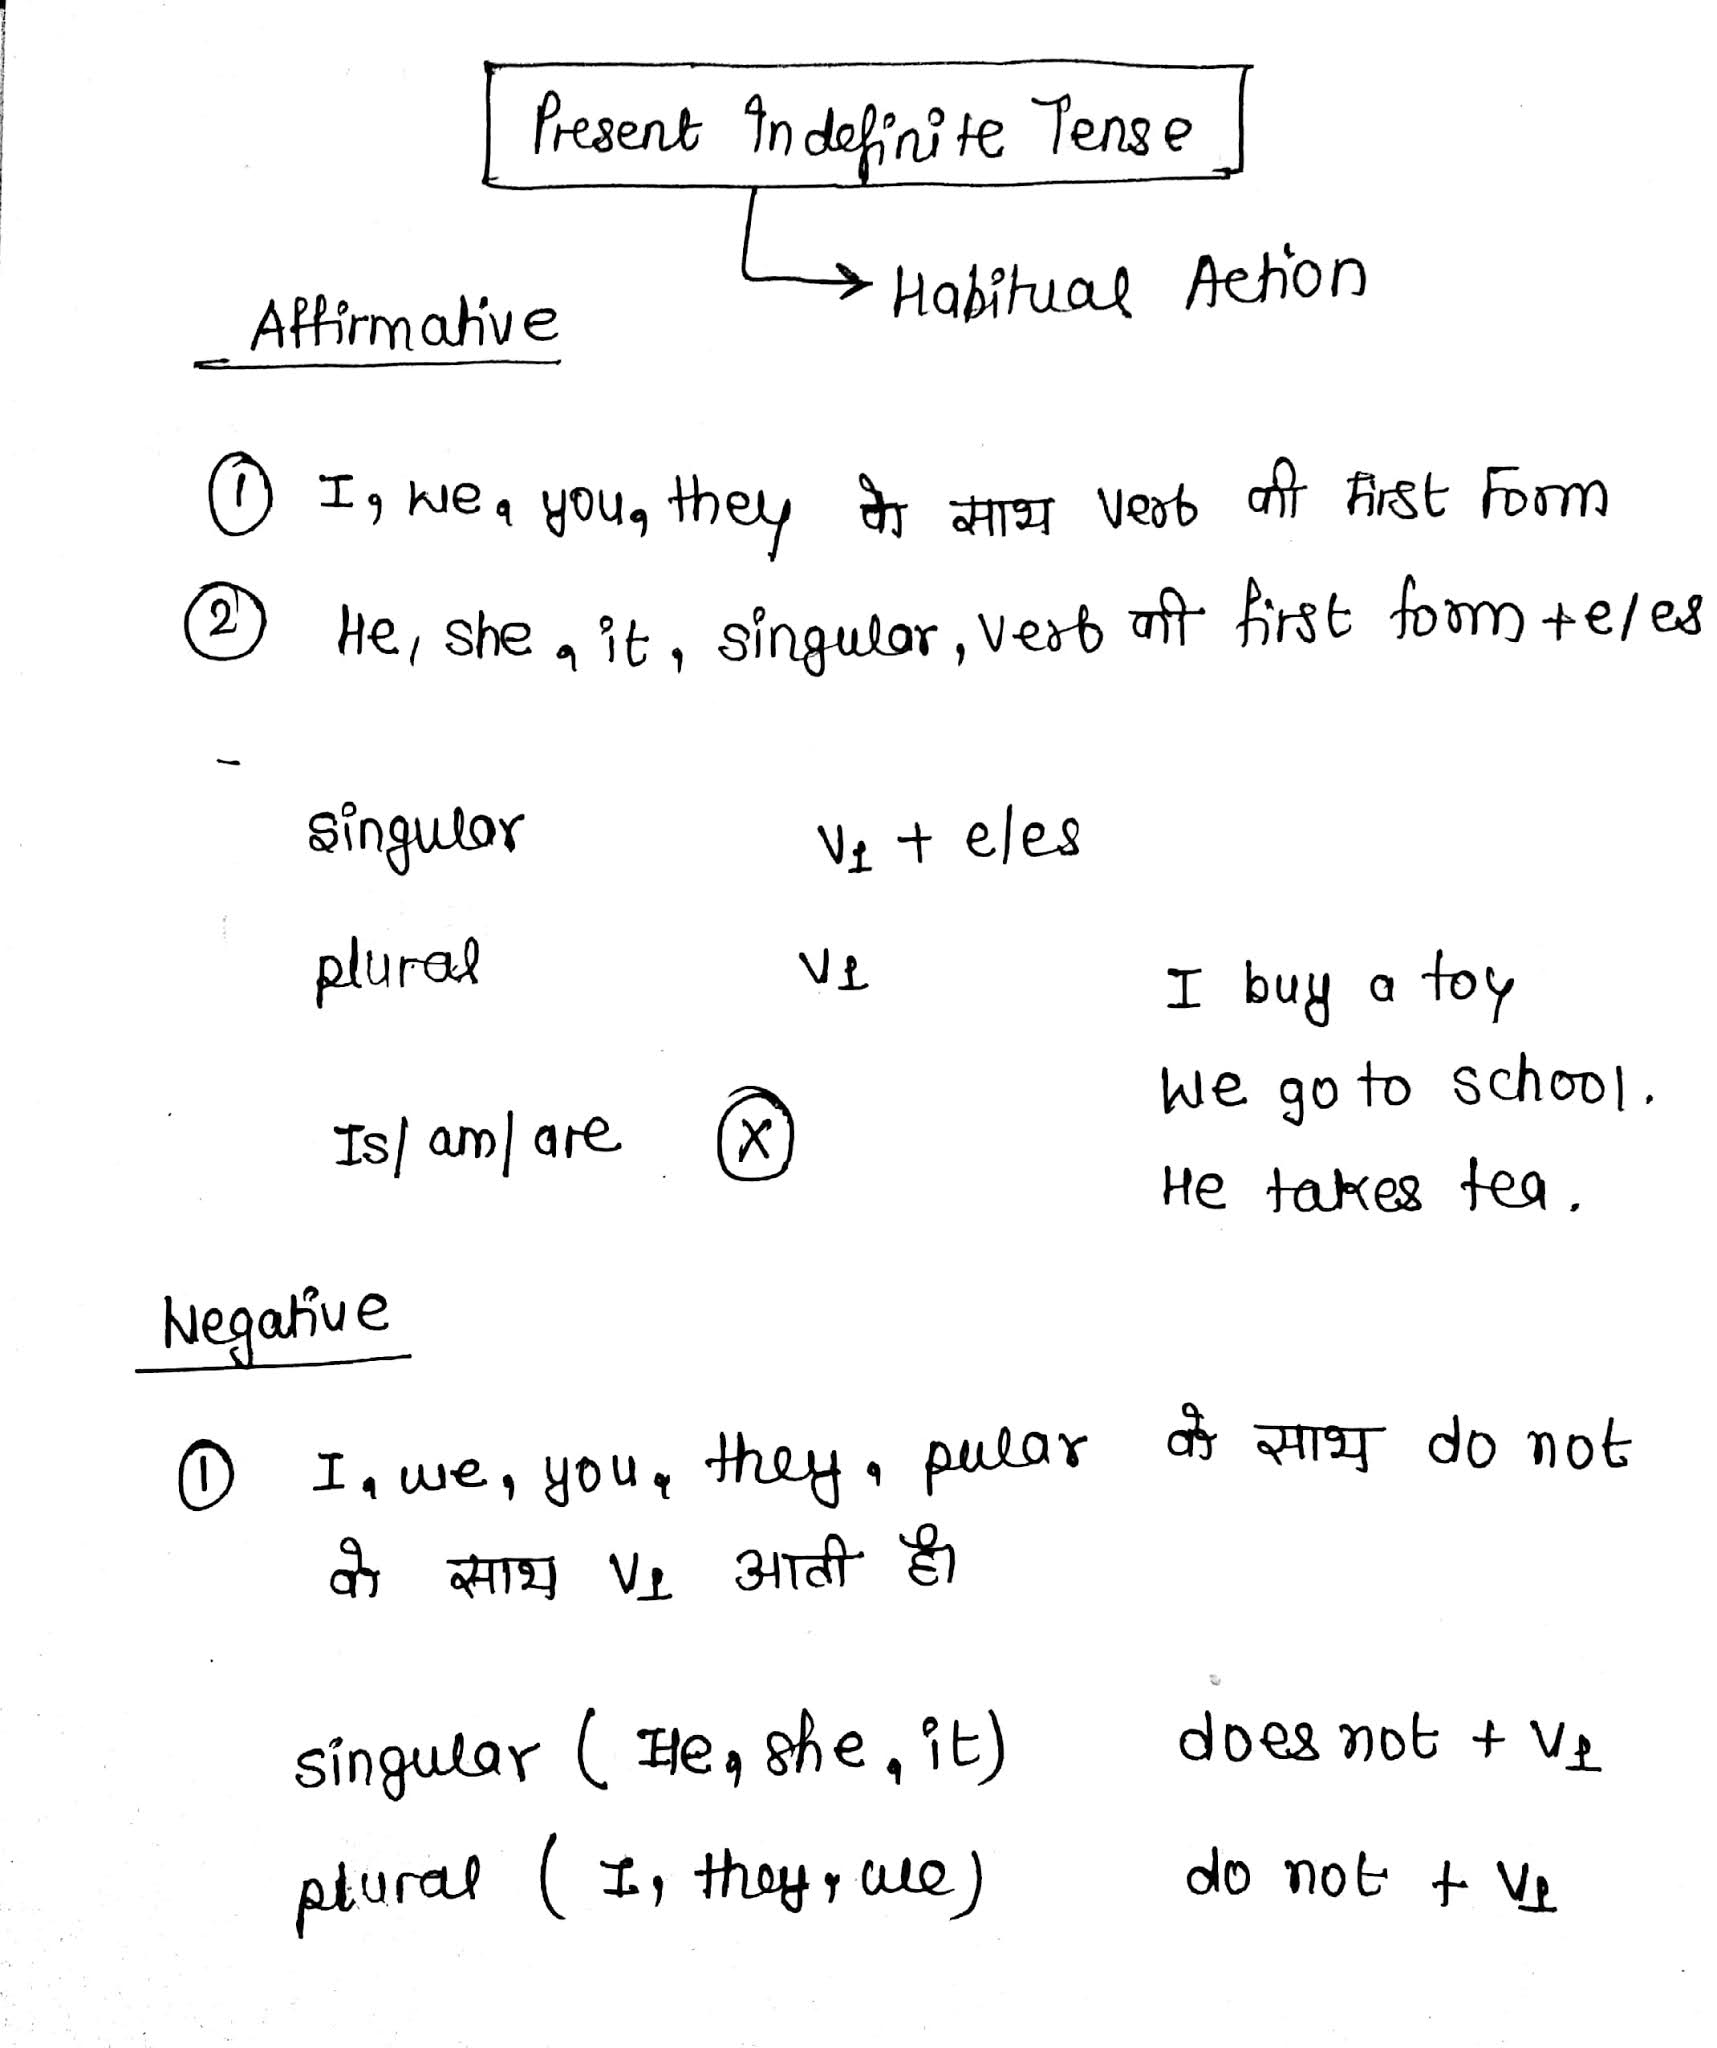 Present Indefinite Tense
Habitual Action
Affirmative
① I, we, you, they के साथ verb की first Form
② He, she, it, singular, verb की first form + e/es
-
singular V1 + e/es
plural V1
I buy a toy
We go to school.
Is/am/are Ⓧ
He takes tea.
Negative
① I, we, you, they, pular के साथ do not
के साथ V1 आती है।
singular ( He, she, it) does not + V1
plural ( I, they, we) do not + V1